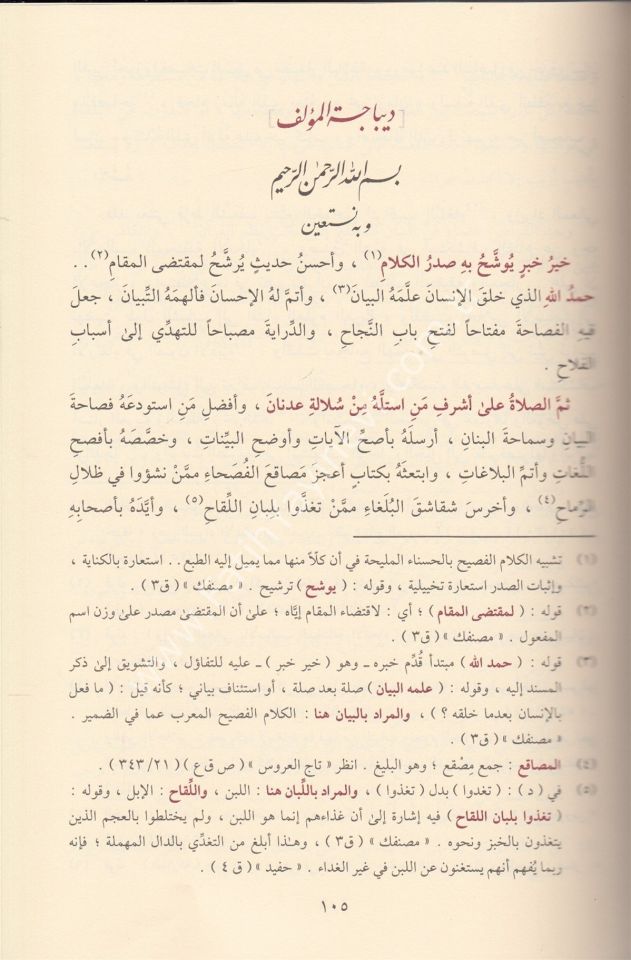 [ديباجة المؤلف]
بسم الله الرحمٰن الرحيم
وبه نستعين
خيرُ خبرٍ يُوشَّحُ بهِ صدرُ الكلامِ(١) ، وأحسنُ حديثٍ يُرشَّحُ لمقتضى المقامِ(٢) . .
حمدُ اللهِ الذي خلقَ الإنسانَ علَّمَهُ البيانَ(٣) ، وأتمَّ لهُ الإحسانَ فألهمَهُ التِّبيانَ ، جعلَ
فيهِ الفصاحةَ مفتاحاً لفتحِ بابِ النَّجاحِ ، والدِّرايةَ مصباحاً للتهدِّي إلىٰ أسبابِ
الفلاحِ .
ثمَّ الصلاةُ علىٰ أشرفِ مَنِ استلَّهُ مِنْ سُلالةِ عدنانَ ، وأفضلِ مَنِ استودعَهُ فصاحةَ
البيانِ وسماحةَ البنانِ ، أرسلَهُ بأصحِّ الآياتِ وأوضحِ البيِّناتِ ، وخصَّصَهُ بأفصحِ
اللُّغاتِ وأتمِّ البلاغاتِ ، وابتعثَهُ بكتابٍ أعجزَ مَصاقعَ الفُصَحاءِ ممَّنْ نشؤوا في ظلالِ
الرِّماحِ(٤) ، وأخرسَ شقاشقَ البُلَغاءِ ممَّنْ تغذَّوا بلِبانِ اللِّقاحِ(٥) ، وأيَّدَهُ بأصحابِهِ
(١) تشبيه الكلام الفصيح بالحسناء المليحة في أن كلّاً منها مما يميل إليه الطبع . . استعارة بالكناية ،
وإثبات الصدر استعارة تخييلية ، وقوله : ( يوشح ) ترشيح . « مصنفك » ( ق٣ ) .
(٢) قوله : ( لمقتضى المقام ) ؛ أي : لاقتضاء المقام إيَّاه ؛ علىٰ أن المقتضىٰ مصدر علىٰ وزن اسم
المفعول . « مصنفك » ( ق٣ ) .
(٣) قوله : ( حمد الله ) مبتدأ قُدِّم خبره ـ وهو ( خير خبر ) ـ عليه للتفاؤل ، والتشويق إلىٰ ذكر
المسند إليه ، وقوله : ( علمه البيان ) صلة بعد صلة ، أو استئناف بياني ؛ كأنه قيل : ( ما فعل
بالإنسان بعدما خلقه ؟ ) ، والمراد بالبيان هنا : الكلام الفصيح المعرب عما في الضمير .
« مصنفك » ( ق٣ ) .
(٤) المصاقع : جمع مِصْقع ؛ وهو البليغ . انظر « تاج العروس » ( ص ق ع ) ( ٣٤٣/٢١ ) .
(٥) في ( د ) : ( تغدوا ) بدل ( تغذوا ) ، والمراد باللِّبان هنا : اللبن ، واللِّقاح : الإبل ، وقوله :
( تغذوا بلبان اللقاح ) فيه إشارة إلى أن غذاءهم إنما هو اللبن ، ولم يختلطوا بالعجم الذين
يتغذون بالخبز ونحوه . « مصنفك » ( ق٣ ) ، وهـٰذا أبلغ من التغدِّي بالدال المهملة ؛ فإنه
ربما يُفهم أنهم يستغنون عن اللبن في غير الغداء . « حفيد » ( ق ٤ ) .
١٠٥